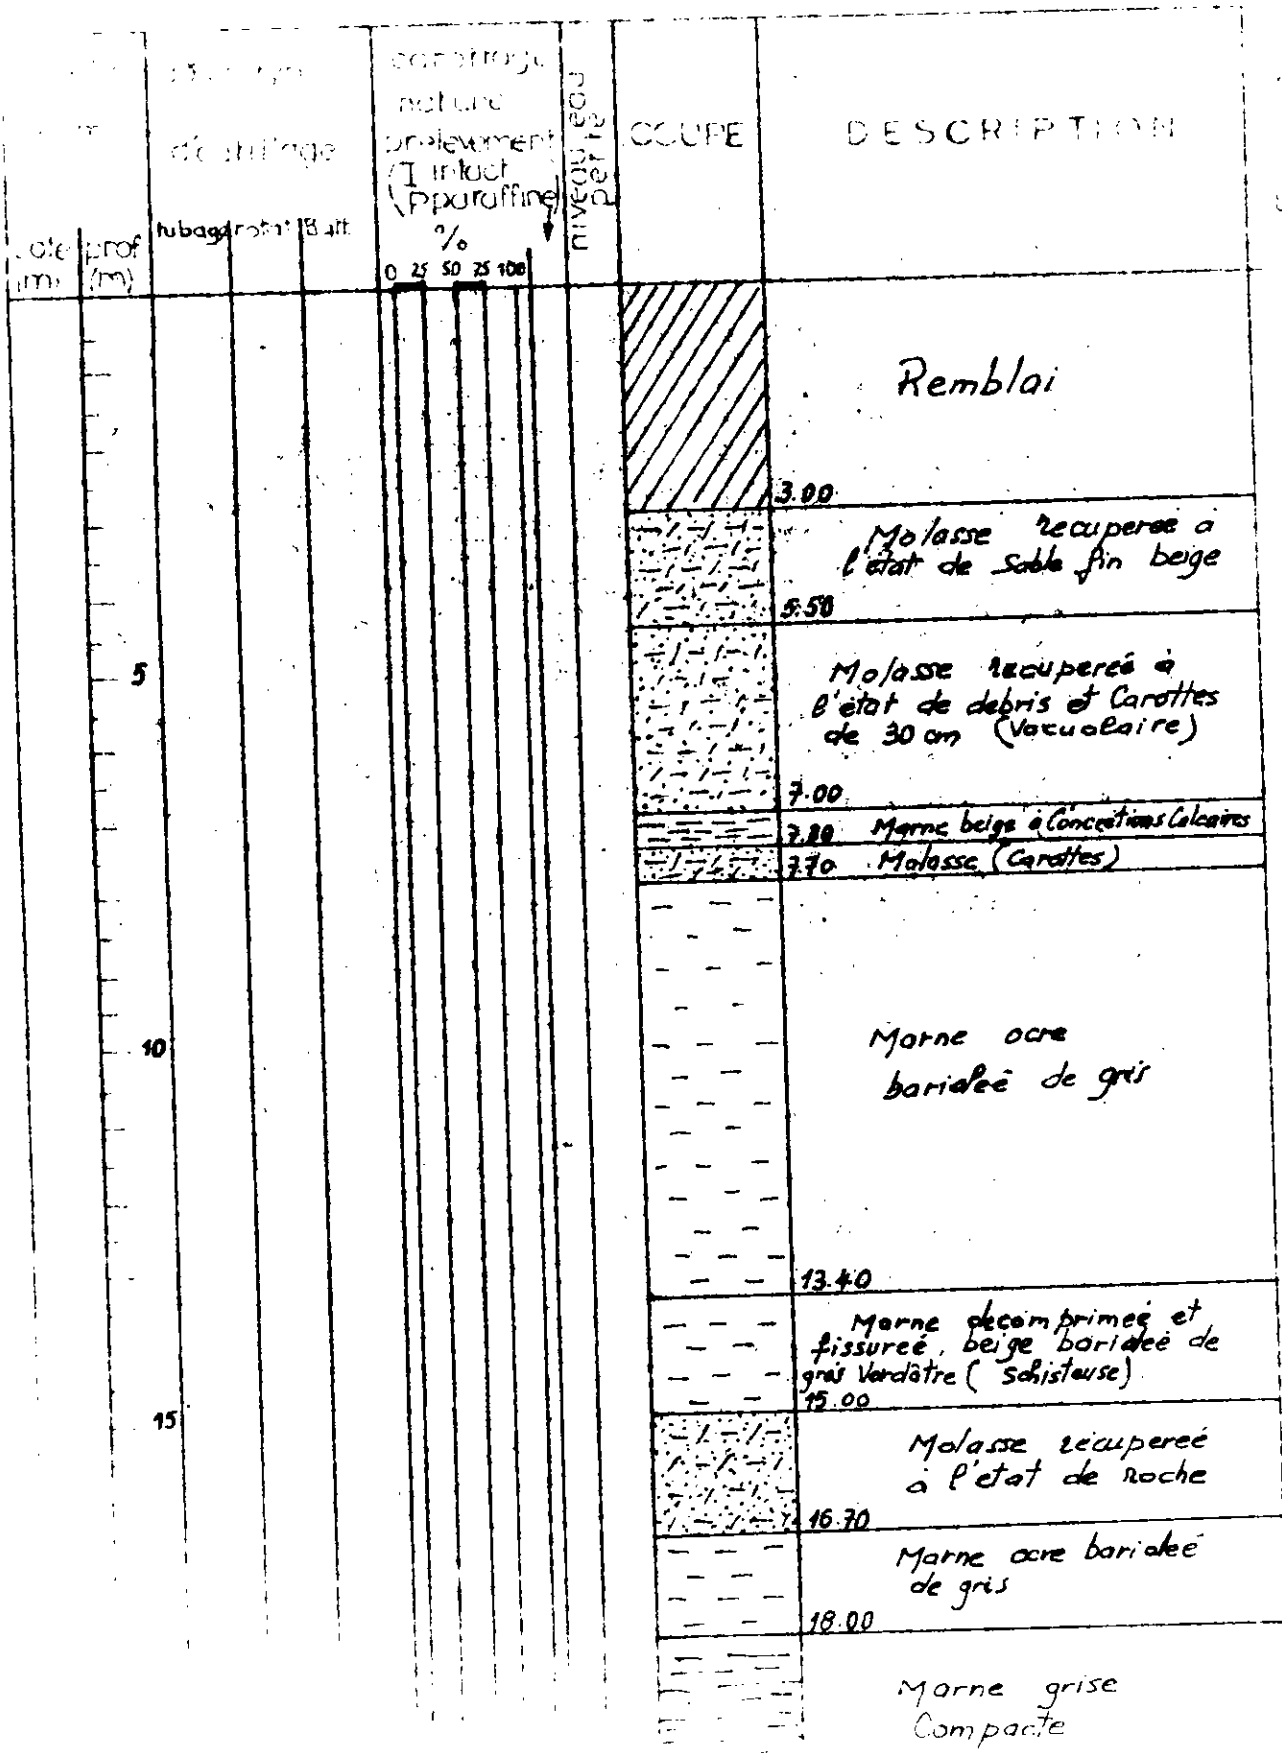 d'outillage
carottage
nature
prelevement
(I intact
(P paraffine)
%
niveau eau
COUPE
DESCRIPTION
tubage rotat Batt
cote prof
(m) (m)
0 25 50 75 100
Remblai
3.00
Molasse recuperee a
l'état de Sable fin beige
5.50
5
Molasse recupereé à
l'état de debris et Carottes
de 30 cm (Vacuolaire)
7.00
Marne beige à Concretions Calcaires
7.70 Molasse (Carottes)
10
Marne ocre
barioleé de gris
13.40
Marne decomprimeé et
fissureé, beige barioleé de
gris Verdâtre (Schisteuse)
15.00
15
Molasse récupereé
à l'état de roche
16.70
Marne ocre barioleé
de gris
18.00
Marne grise
Compacte